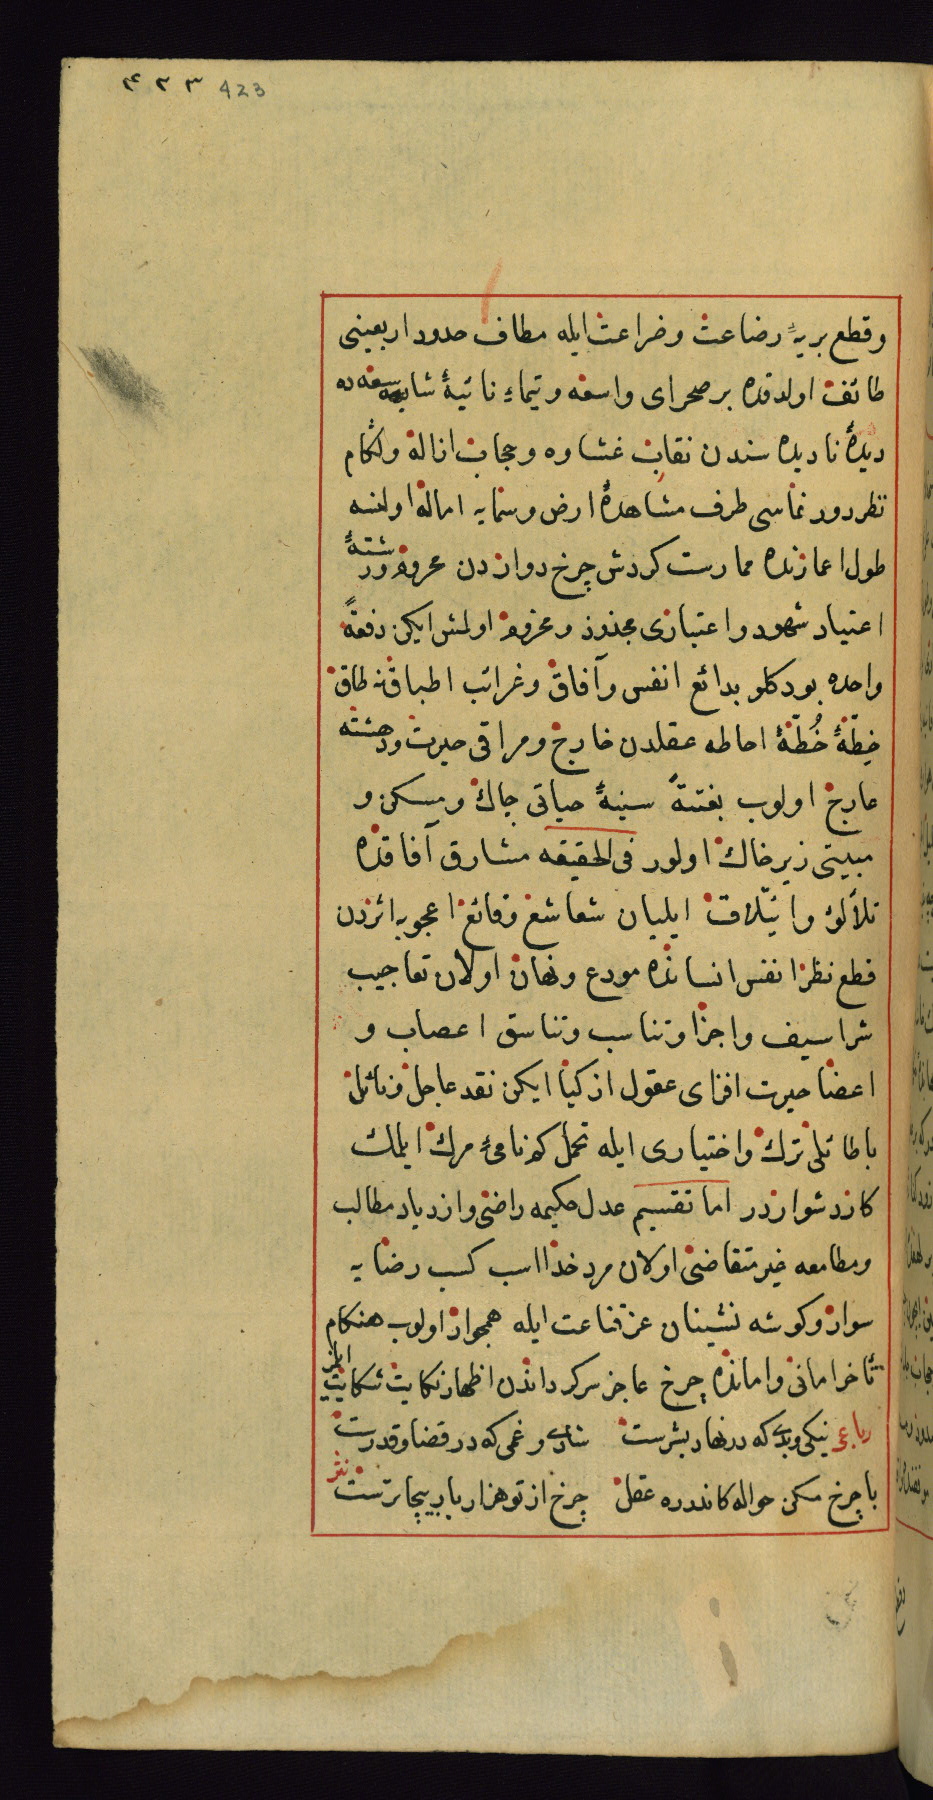 ۴۲۳ 423
وقطع بریۀ رضاعت وضراعت ایله مطاف حدود اربعینی
طائف اولدقده برصحرای واسعه وتیماء نائیۀ شاسعه ده
دیدۀ نادیده سندن نقاب غشاوه وحجاب ازاله ولکام
نظر دورنماسی طرف مشاهدۀ ارض وسمایه اماله اولنسه
طول اعمارنده ممارست کردش چرخ دواردن محروم ورشتۀ
اعتیاد شهود واعتباری مجذوذ ومخروم اولمش ایکن دفعةً
واحده بودکلو بدائع انفس وآفاق وغرائب اطباق نه طاق
خِطّۀ خُطّۀ احاطه عقلدن خارج ومراقی حیرت ودهشته
عارج اولوب بغتةً سینۀ حیاتی چاک ومسکن و
مبیتی زیر خاک اولور فی الحقیقه مشارق آفاقده
تلألؤ وائتلاق ایلیان شعاشع وقائع اعجوبه اثردن
قطع نظر انفس انسانده مودع ونهان اولان تعاجیب
شراسیف واجزا وتناسب وتناسق اعصاب و
اعضا حیرت افزای عقول ازکیا ایکن نقد عاجل وزائلی
باطائلی ترک واختیاری ایله تحمل کم نامئ مرک ایلمک
کار دشواردر اما تقسیم عدل حکیمه راضی وازدیاد مطالب
ومطامعه غیر متقاضی اولان مرد خدا اسب کسب رضایه
سوار وکوشه نشینان عز قناعت ایله همجوار اولوب هنکام
تأخر امانی وامانده چرخ عاجز سرکرداندن اظهار نکایت شکایت ایلمز
رباعی نیکی وبدی که در نهاد بشرست شادی وغمی که در قضا وقدرست
با چرخ مکن حواله کاندر ره عقل چرخ از تو هزار بار بیچاره ترست نثر